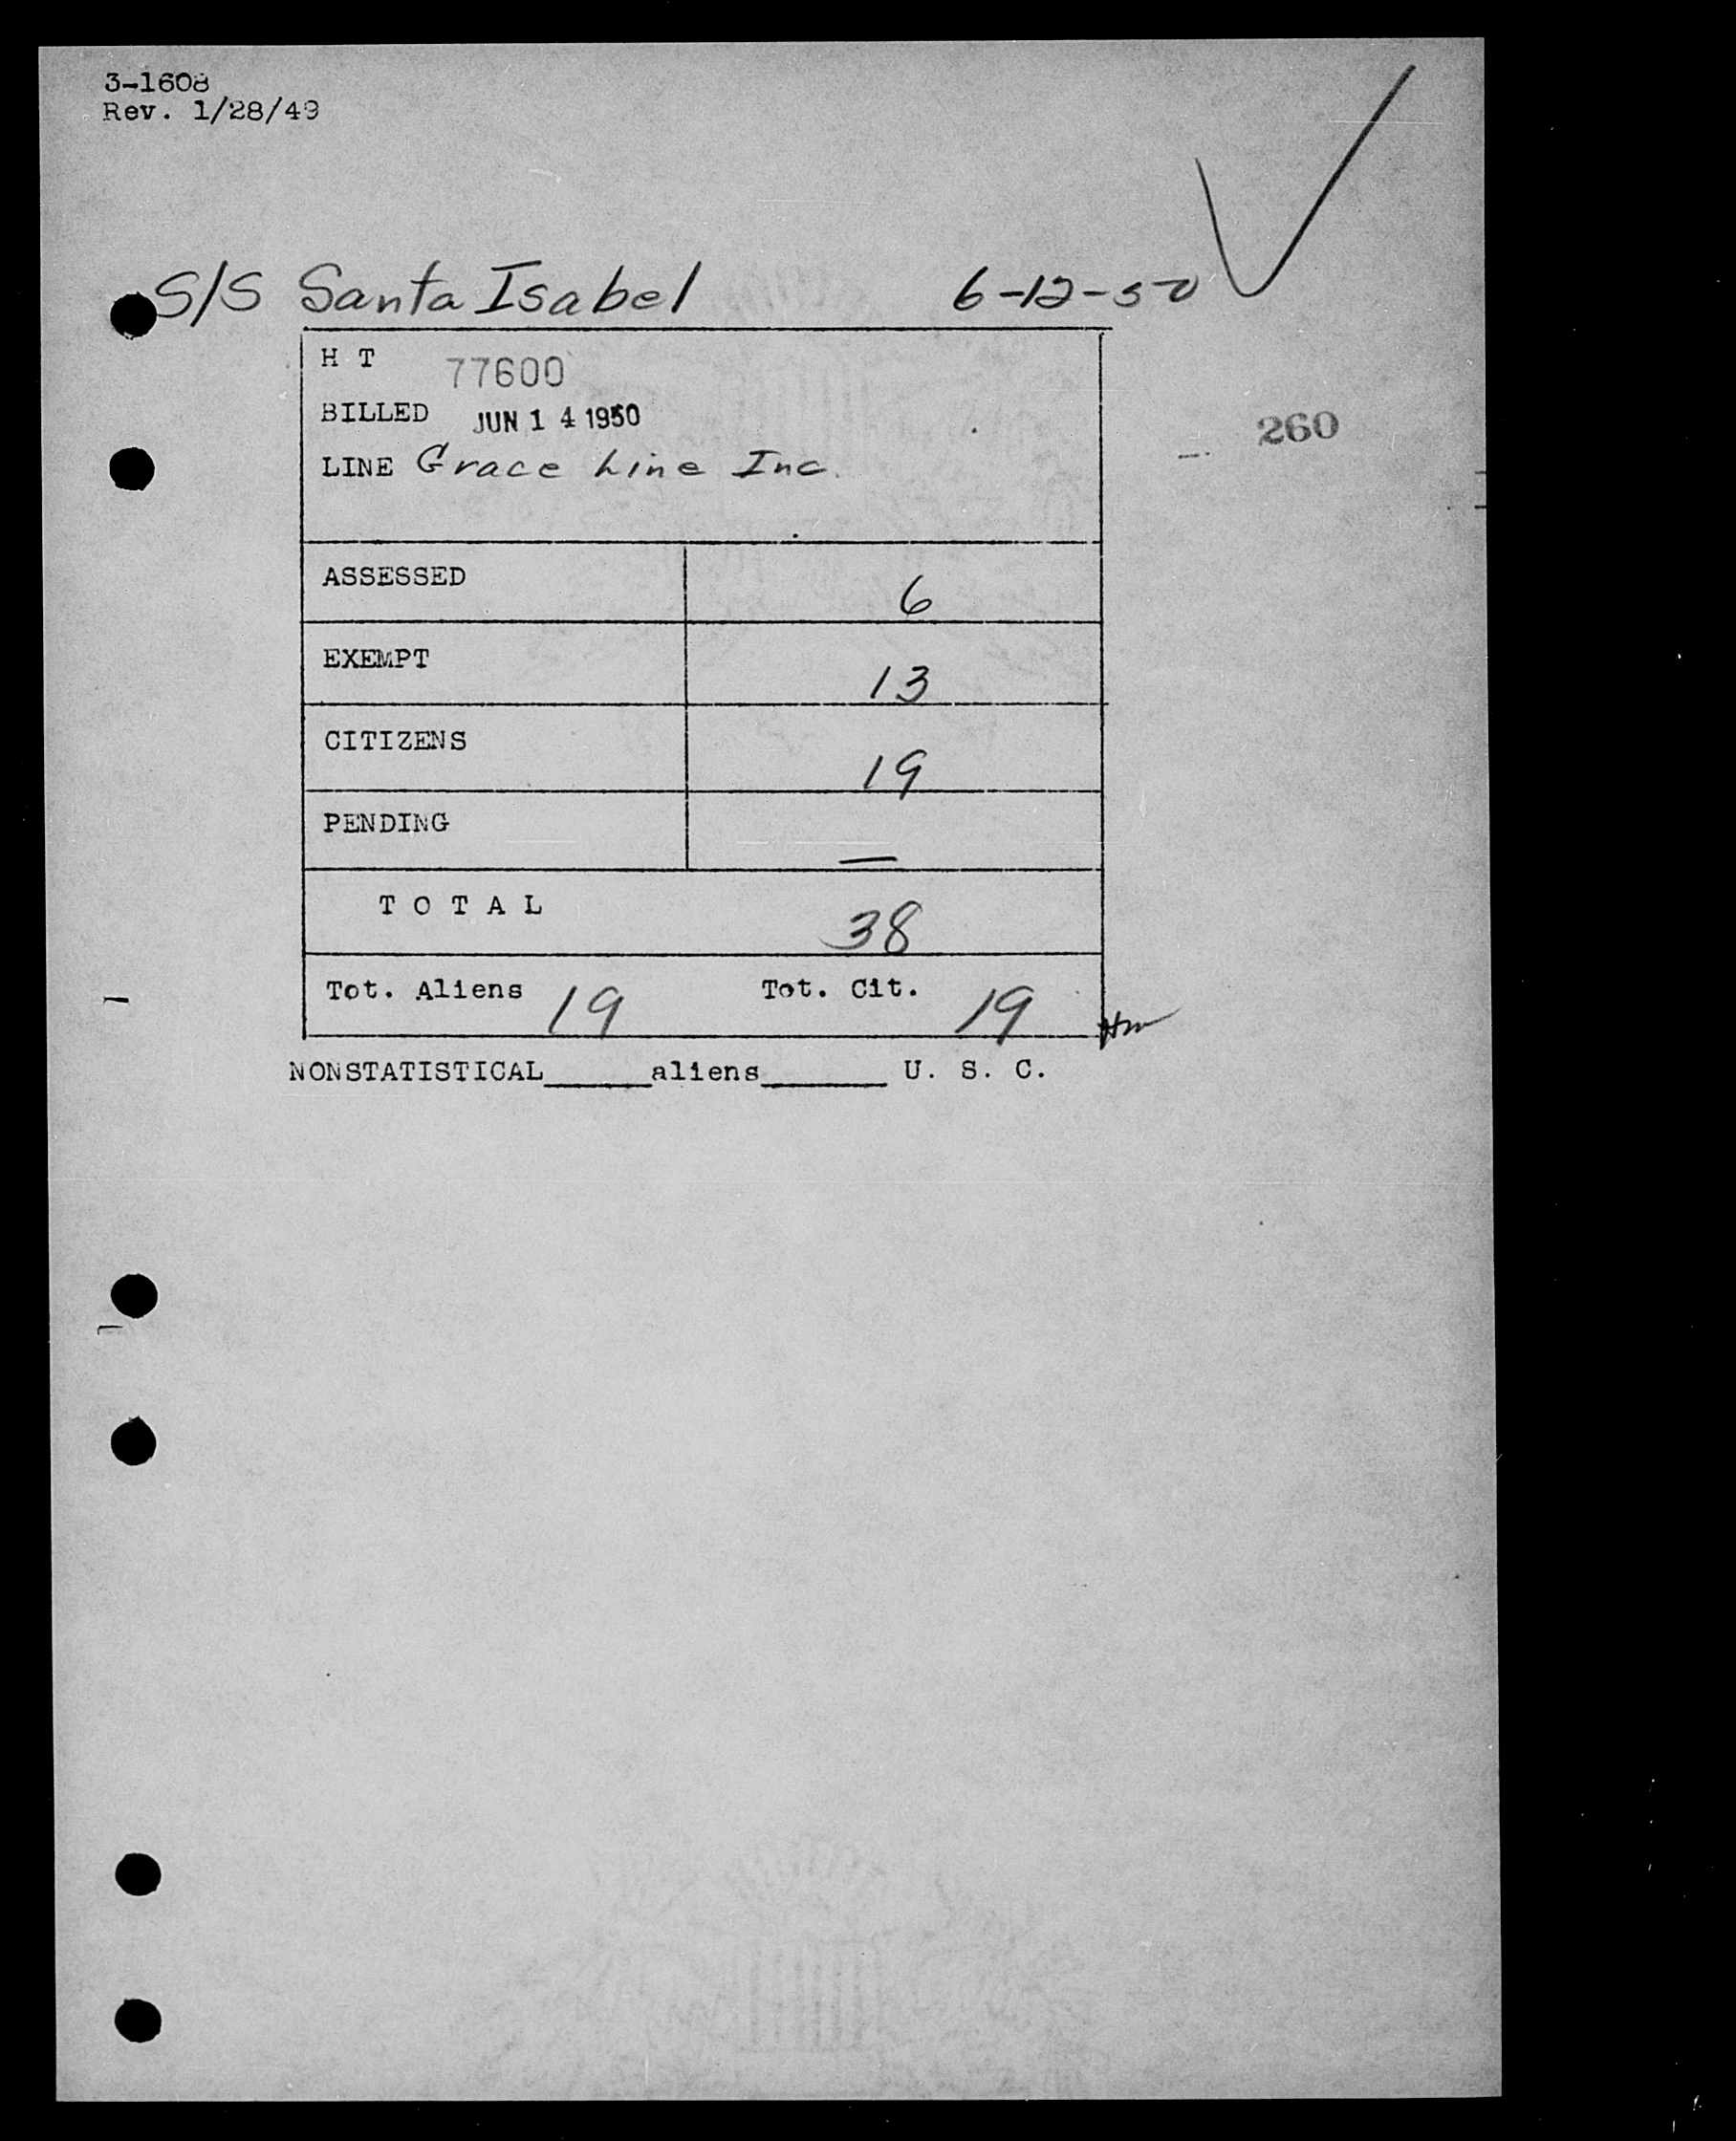 3-1608
Rev. 1/28/49
S/S Santa Isabel 6-12-50
H T 77600
BILLED JUN 14 1950
260
LINE Grace Line Inc.
ASSESSED 6
EXEMPT 13
CITIZENS 19
PENDING —
T O T A L 38
Tot. Aliens 19 Tot. Cit. 19
NONSTATISTICAL______aliens_______ U. S. C.